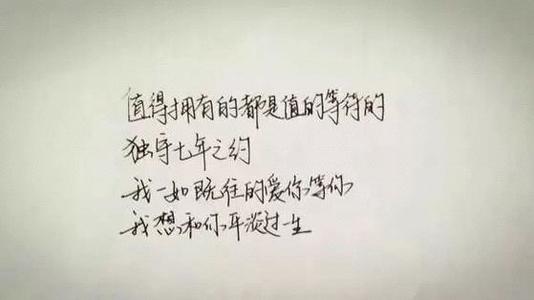 值得拥有的都是值的等待的
独守七年之约
我一如既往的爱你等你
我想和你平淡过一生